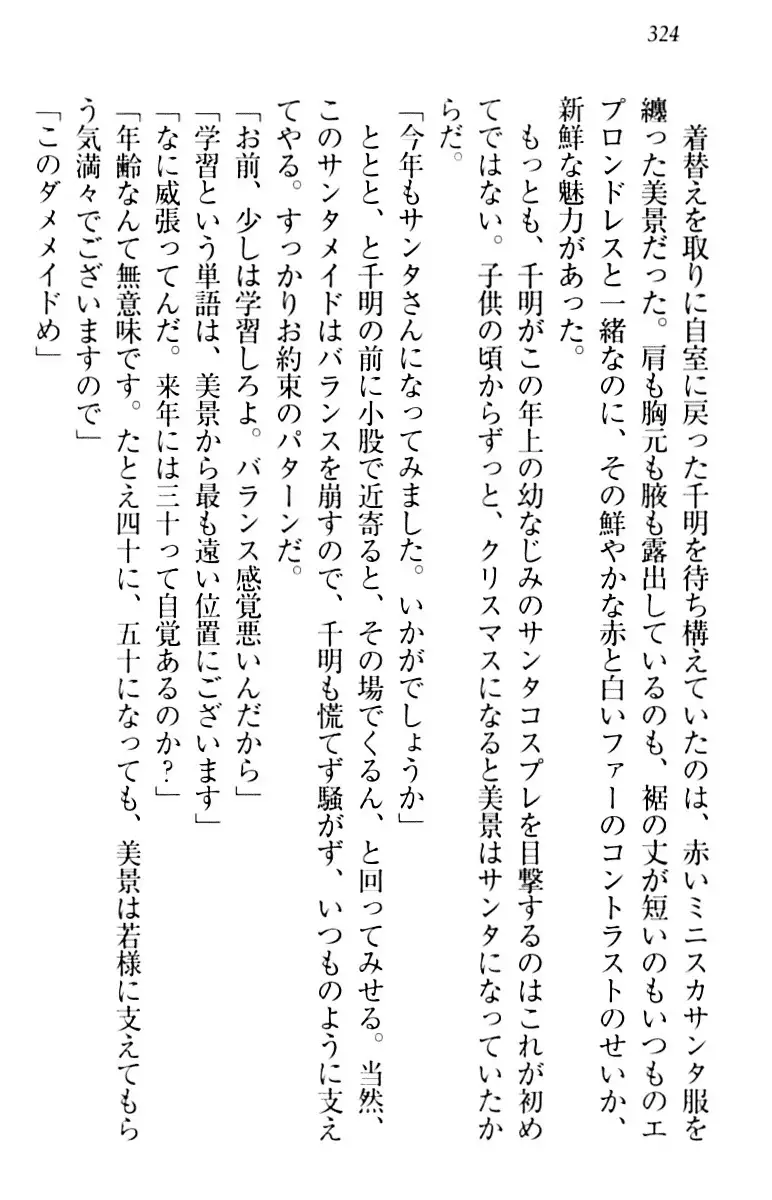 324
着替えを取りに自室に戻った千明を待ち構えていたのは、赤いミニスカサンタ服を
纏った美景だった。肩も胸元も腋も露出しているのも、裾の丈が短いのもいつものエ
プロンドレスと一緒なのに、その鮮やかな赤と白いファーのコントラストのせいか、
新鮮な魅力があった。
もっとも、千明がこの年上の幼なじみのサンタコスプレを目撃するのはこれが初め
てではない。子供の頃からずっと、クリスマスになると美景はサンタになっていたか
らだ。
「今年もサンタさんになってみました。いかがでしょうか」
ととと、と千明の前に小股で近寄ると、その場でくるん、と回ってみせる。当然、
このサンタメイドはバランスを崩すので、千明も慌てず騒がず、いつものように支え
てやる。すっかりお約束のパターンだ。
「お前、少しは学習しろよ。バランス感覚悪いんだから」
「学習という単語は、美景から最も遠い位置にございます」
「なに威張ってんだ。来年には三十って自覚あるのか?」
「年齢なんて無意味です。たとえ四十に、五十になっても、美景は若様に支えてもら
う気満々でございますので」
「このダメメイドめ」